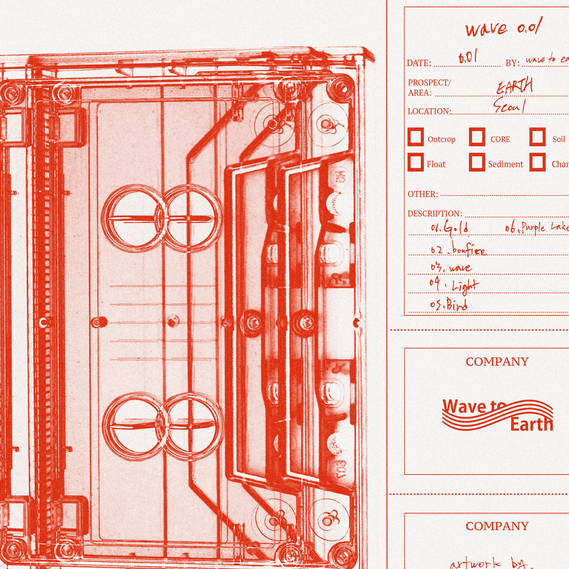 wave 0.01
DATE: 0.01 BY: wave to ea
PROSPECT/
AREA: EARTH
LOCATION: Seoul
Outcrop CORE Soil
Float Sediment Chan
OTHER:
DESCRIPTION:
01. Gold 06. Purple Lake
02. bonfire
03. wave
04. Light
05. Bird
COMPANY
Wave to
Earth
COMPANY
artwork by.